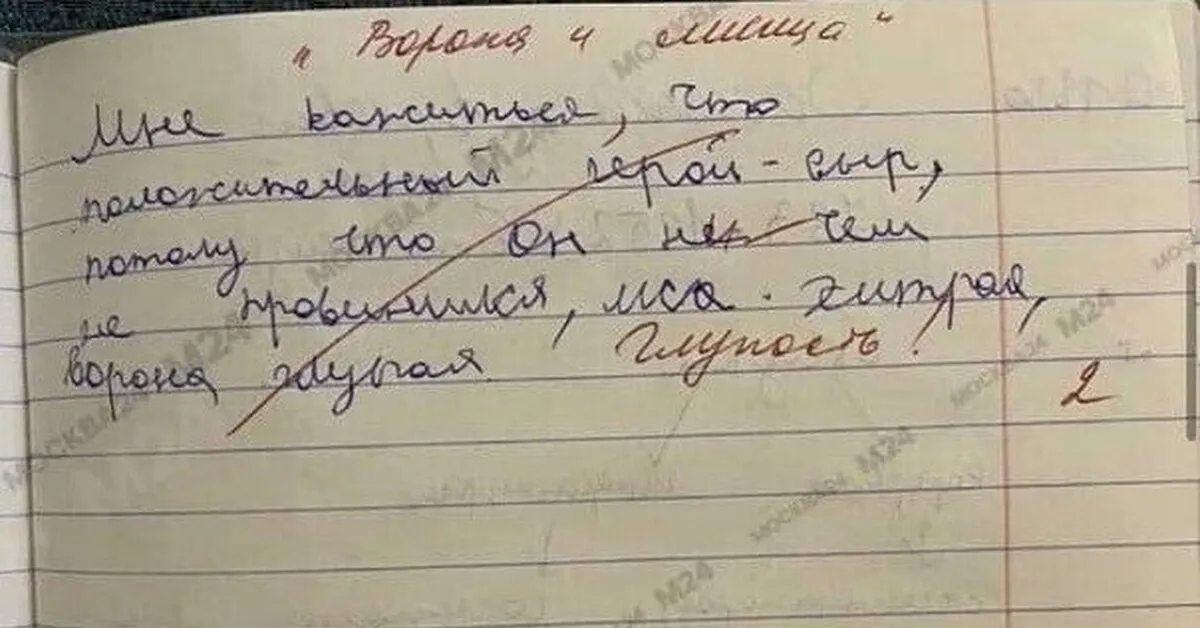 " Ворона и лисица "
Мне кажиться, что
положительный герой - сыр,
потому что он не чем
не провинился, лиса - хитрая,
ворона глупая Глупость!
2
МОСКВА24 М24